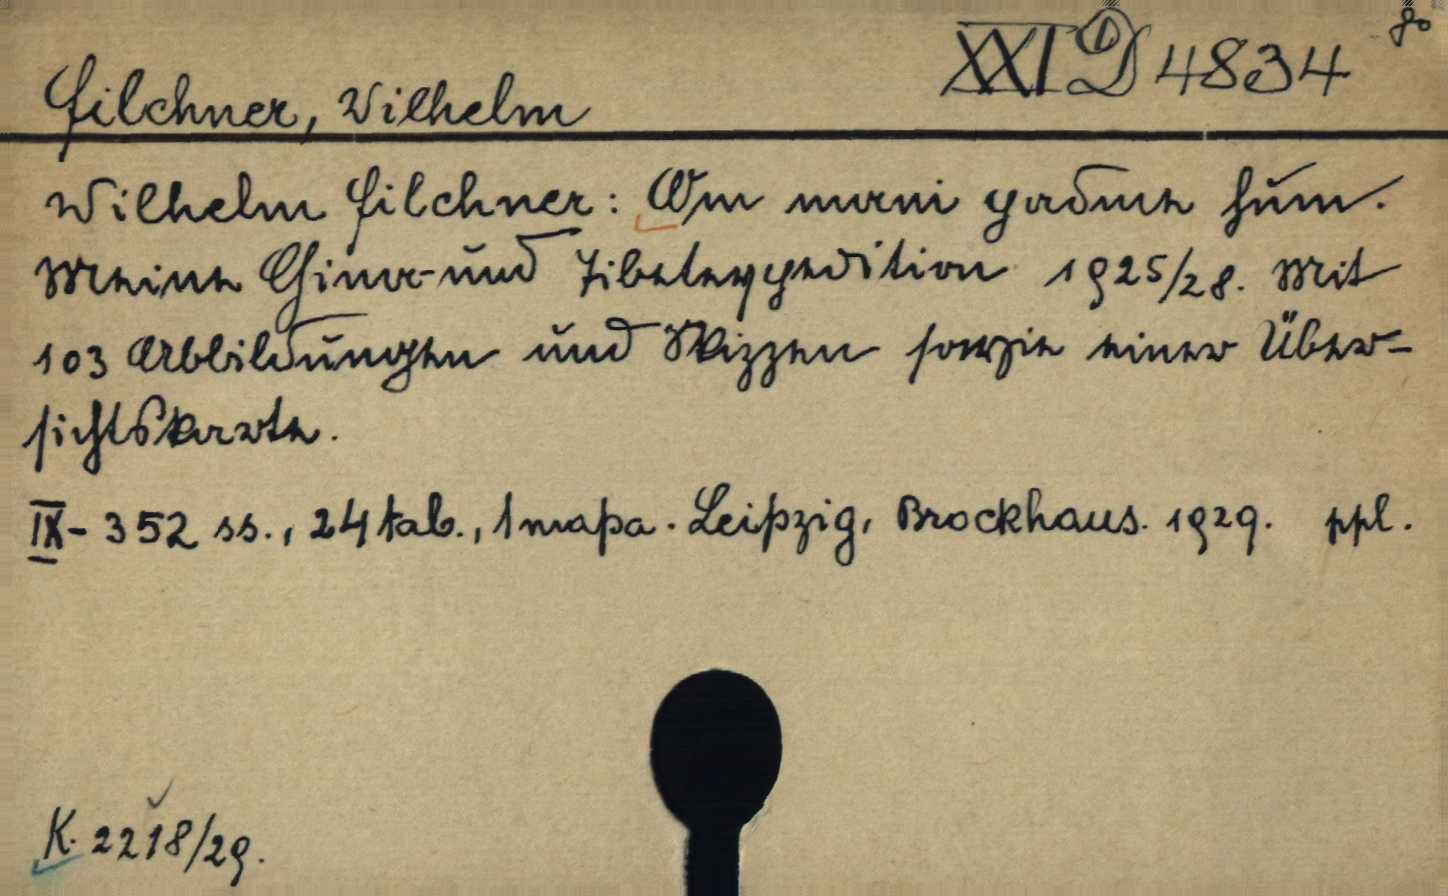 XXI D 4834 8º
Filchner, Wilhelm
Wilhelm Filchner: Om mani padme hum.
Meine China- und Tibetexpedition 1925/28. Mit
103 Abbildungen und Skizzen sowie einer Über-
sichtskarte.
IX- 352 ss., 24 tab., 1 mapa. Leipzig, Brockhaus. 1929. ppl.
K. 2218/29.